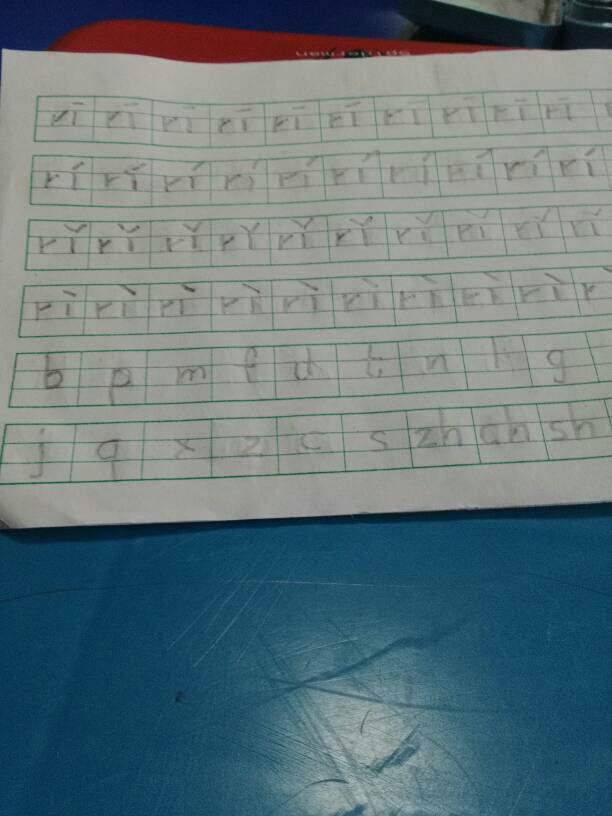 Spiderman
rī rī rī rī rī rī rī rī rī rī
rí rí rí rí rí rí rí rí rí rí
rǐ rǐ rǐ rǐ rǐ rǐ rǐ rǐ rǐ rǐ
rì rì rì rì rì rì rì rì rì
b p m f d t n l g
j q x z c s zh ch sh